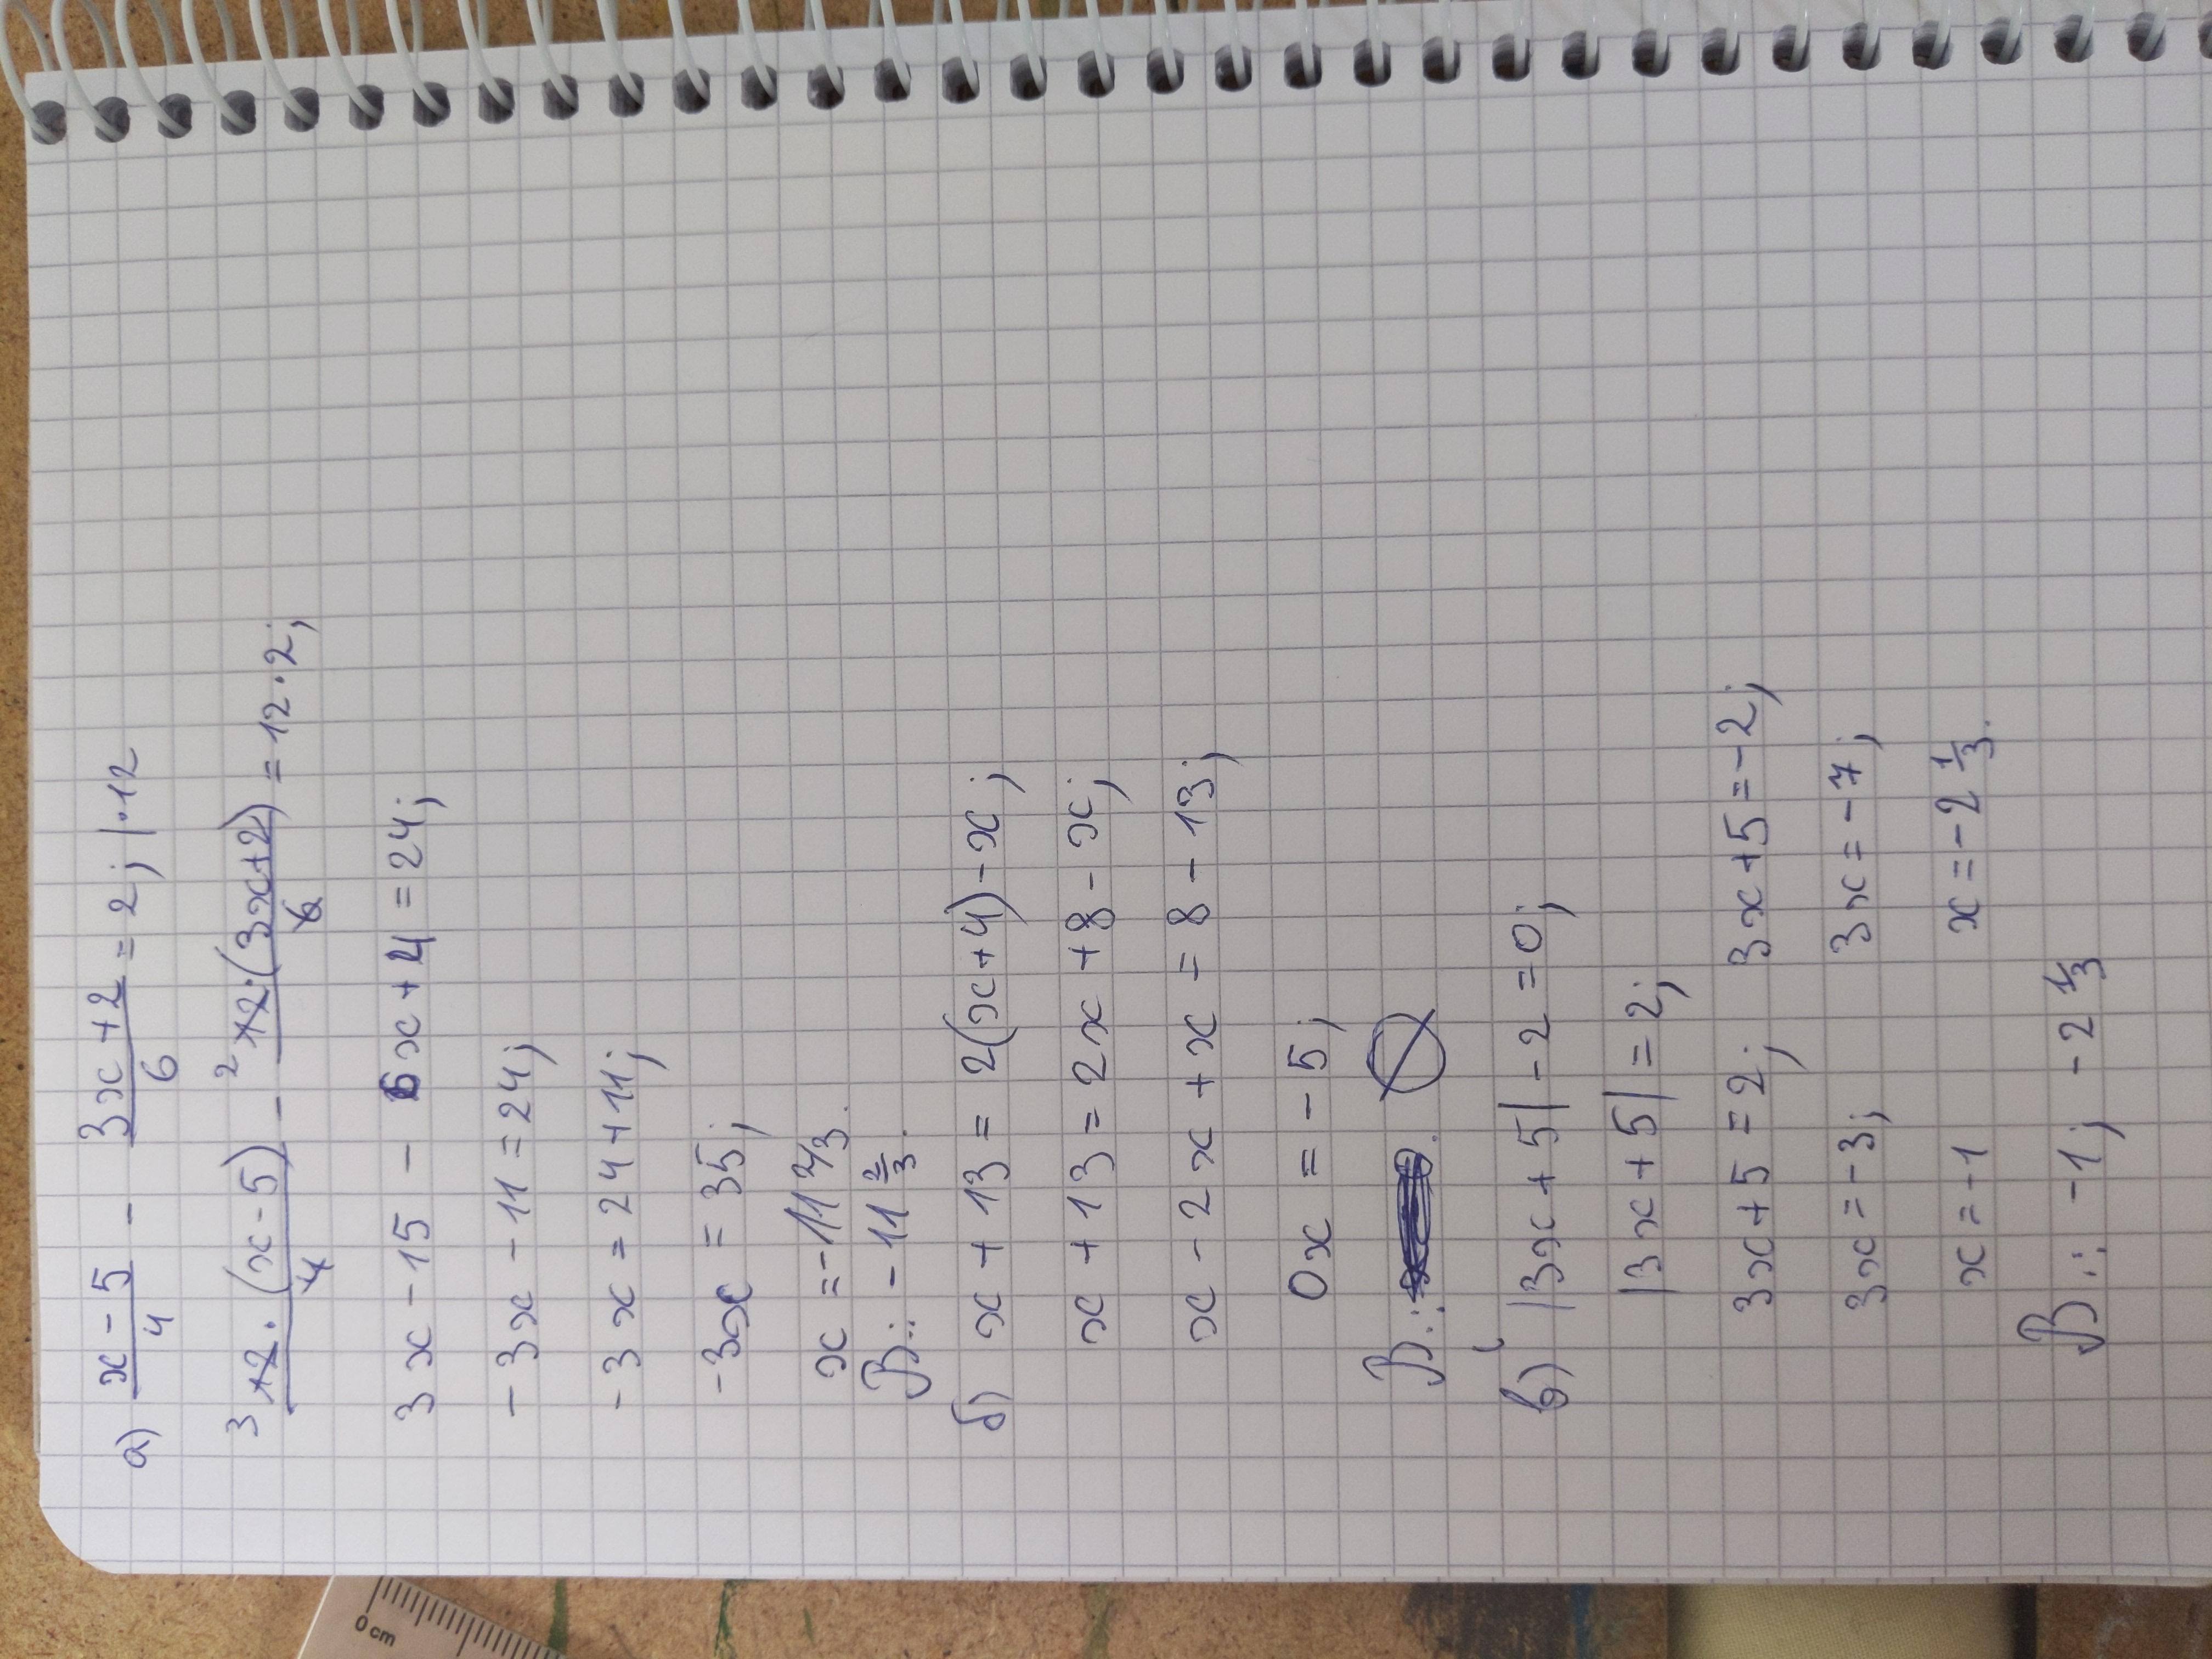 а) x-5/4 - 3x+2/6 = 2; |·12
3 12·(x-5)/4 - 2 12·(3x+2)/6 = 12·2;
3x-15 - 6x+4=24;
-3x-11=24;
-3x=24+11;
-3x=35;
x=-11 2/3.
В.: -11 2/3.
б) x+13=2(x+4)-x;
x+13=2x+8-x;
x-2x+x=8-13;
0x=-5;
В.: ∅
в) |3x+5|-2=0;
|3x+5|=2;
3x+5=2; 3x+5=-2;
3x=-3; 3x=-7;
x=-1 x=-2 1/3.
В.: -1; -2 1/3
0 cm